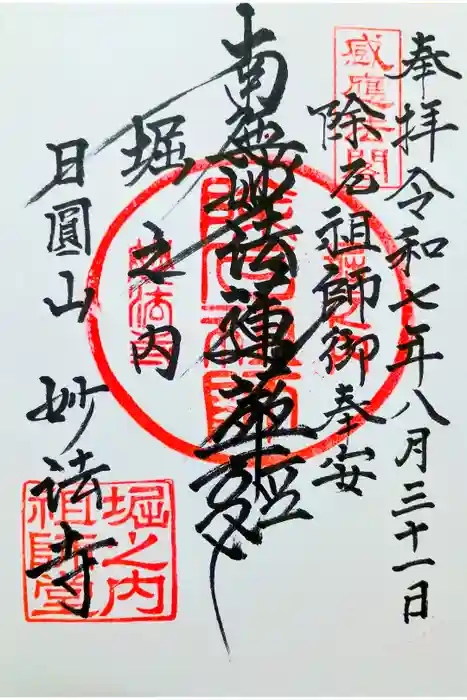 奉拝令和七年八月三十一日
除厄祖師御奉安
南無妙法蓮華経
堀之内
日圓山 妙法寺
感應法閣
堀之内
祖師堂